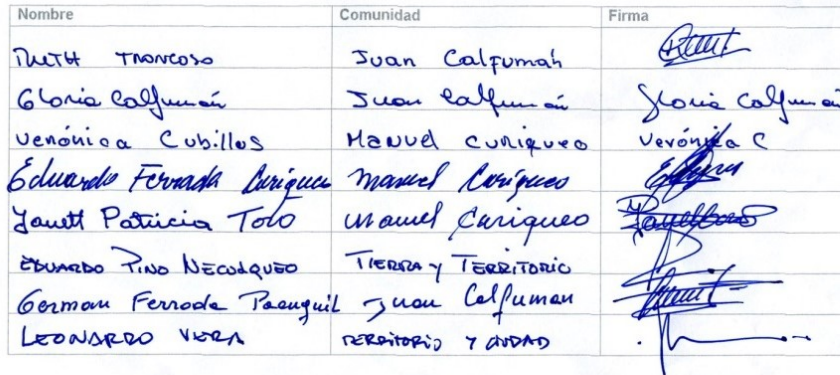 Nombre Comunidad Firma
RUTH TRONCOSO Juan Calfumán
Gloria Calfumán Juan Calfumán Gloria Calfumán
Verónica Cubillos Manuel Curiqueo Verónica C
Eduardo Ferrada Curiqueo Manuel Curiqueo
Janett Patricia Toro Manuel Curiqueo
EDUARDO PINO NECULQUEO TIERRA y TERRITORIO
German Ferrada Juan Calfuman
LEONARDO VERA TERRITORIO Y CIUDAD